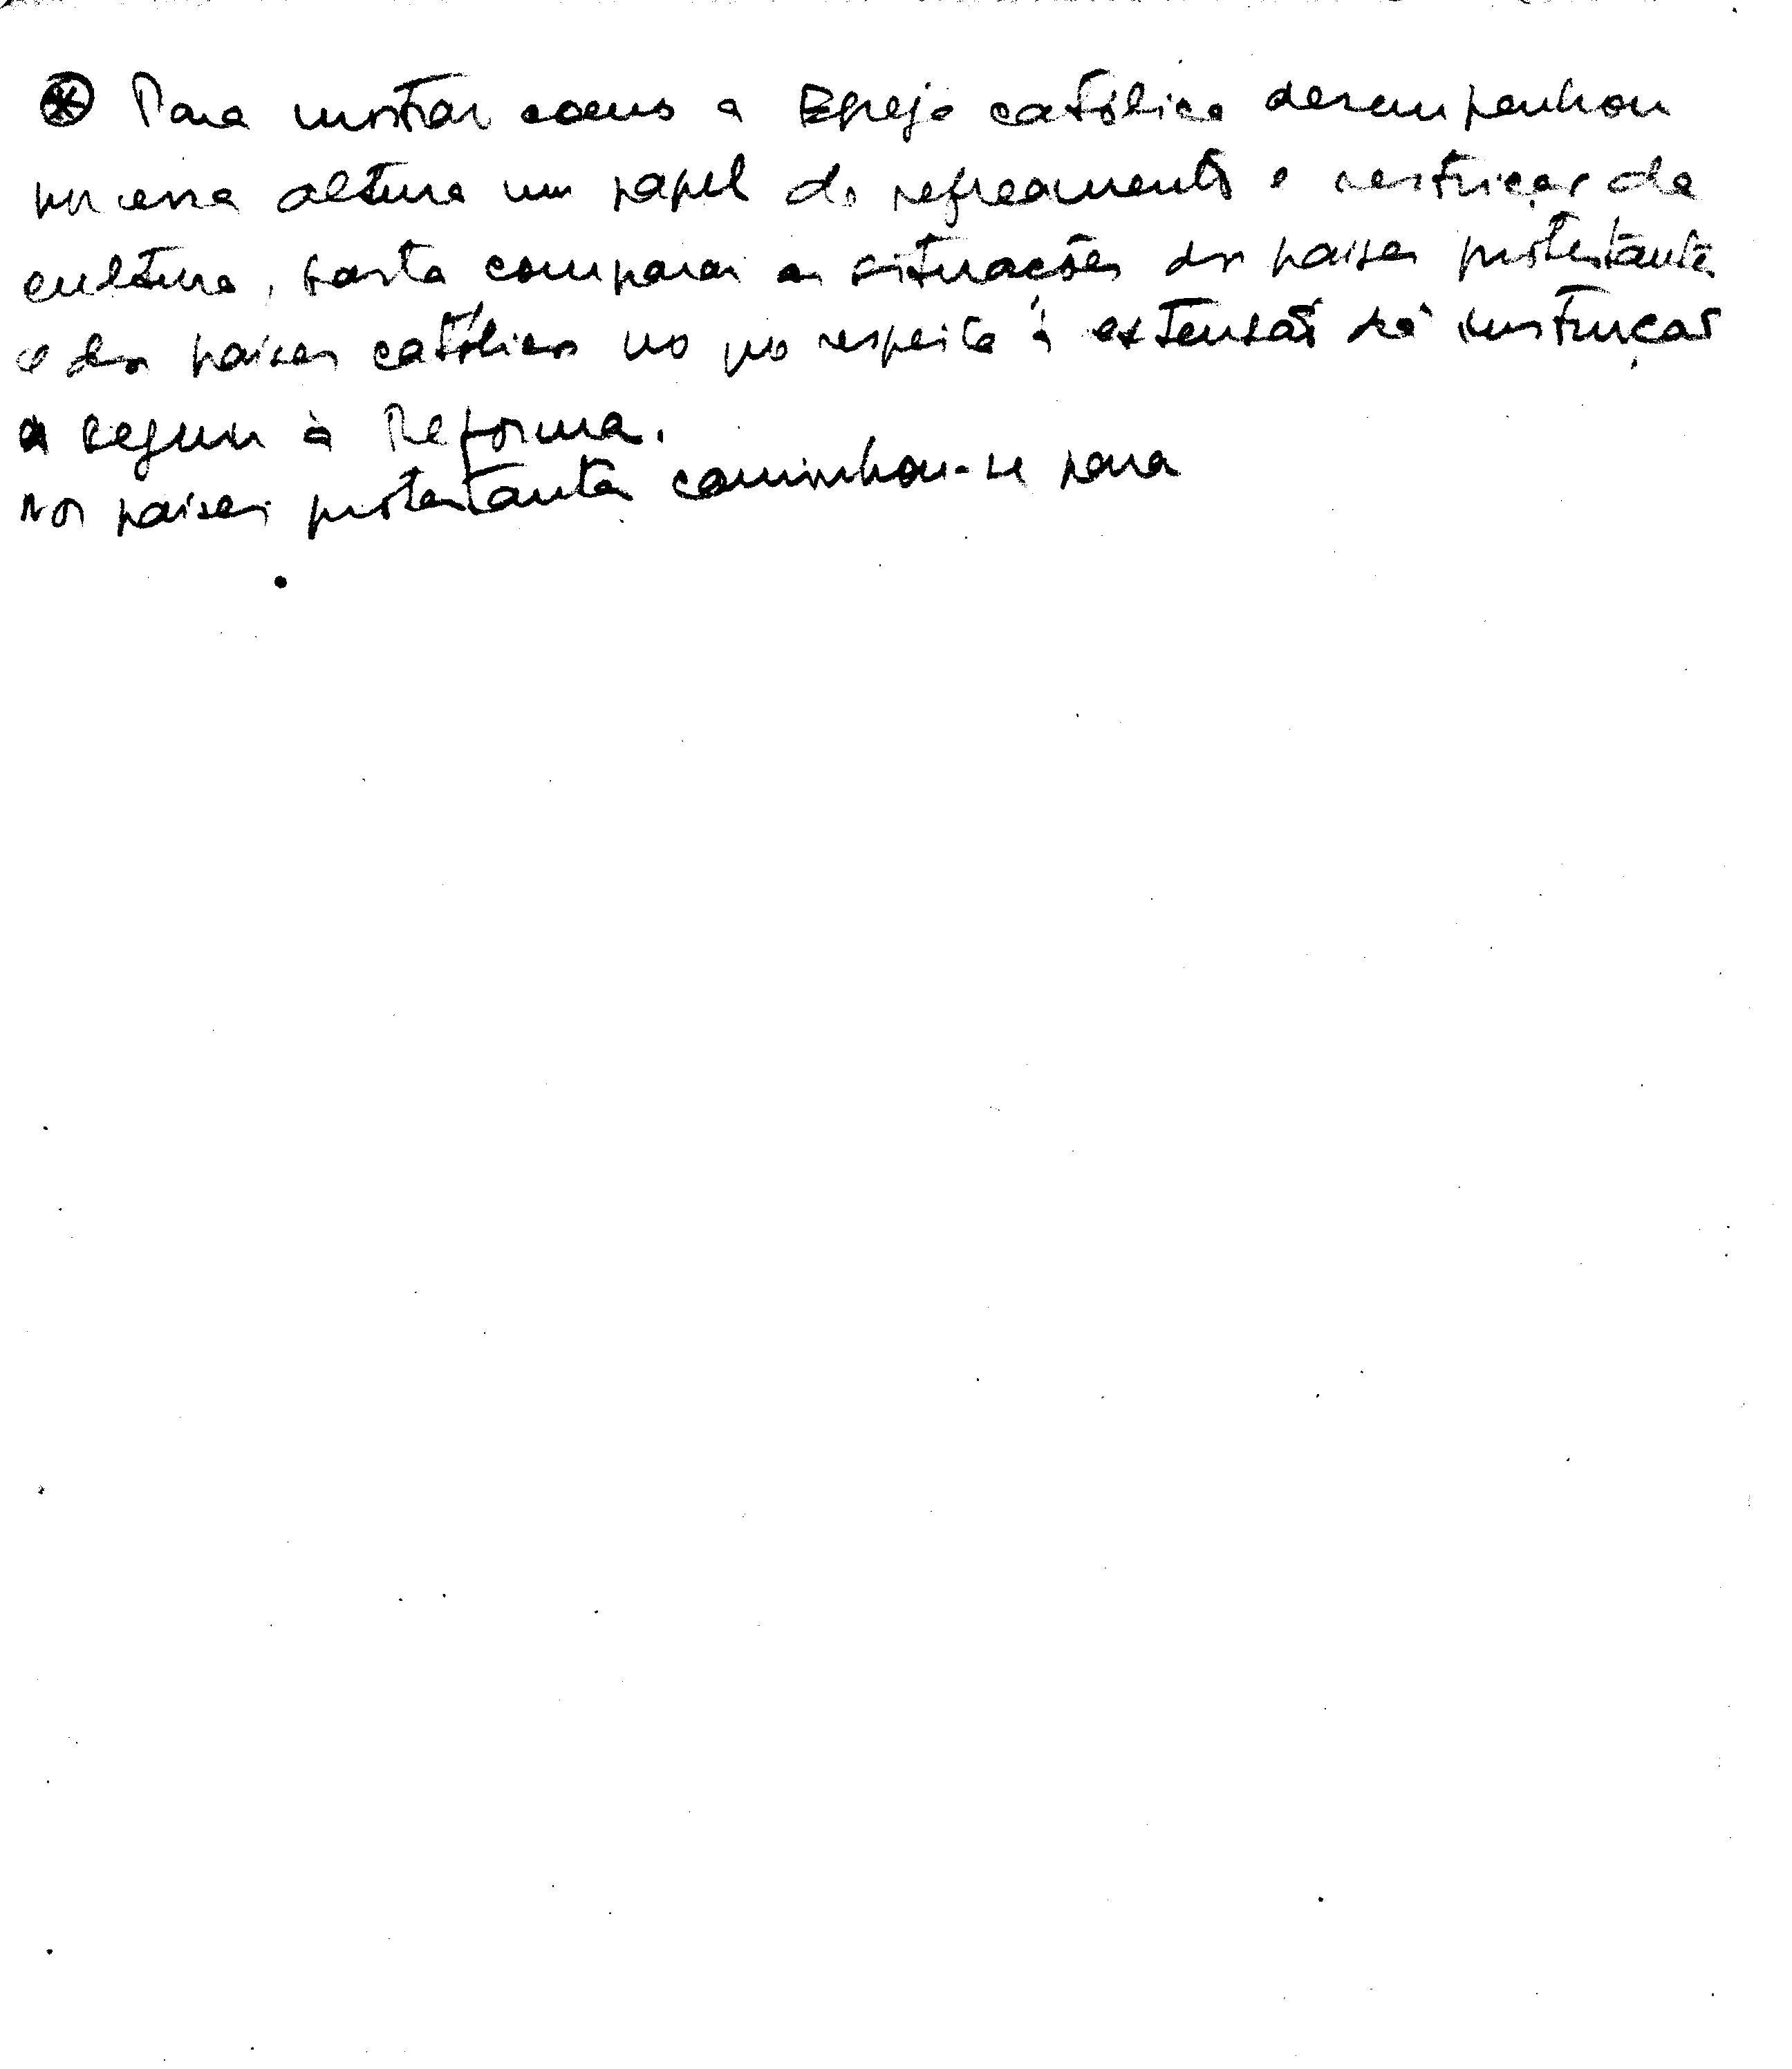 ⊛ Para mostrar como a Egreja católica desempenhou
por essa altura um papel de refreamento e restrição da
cultura, basta comparar as situações dos paises protestantes
e dos paises católicos no que respeita à extensão da instrução
a seguir à Reforma.
Nos paises protestantes caminhou-se para